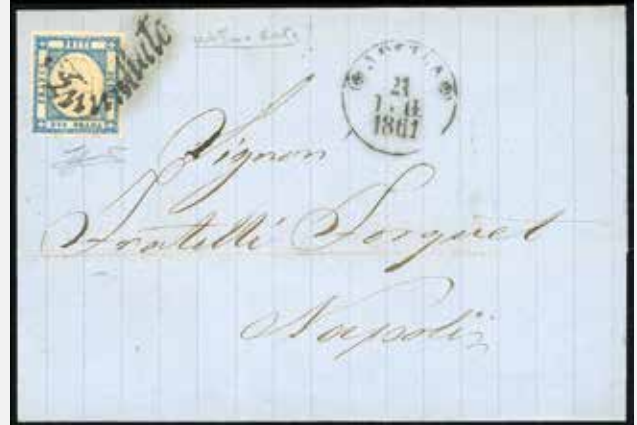 Annullato
DUE GRANA
21
1861
Signori
Fratelli Forquet
Napoli